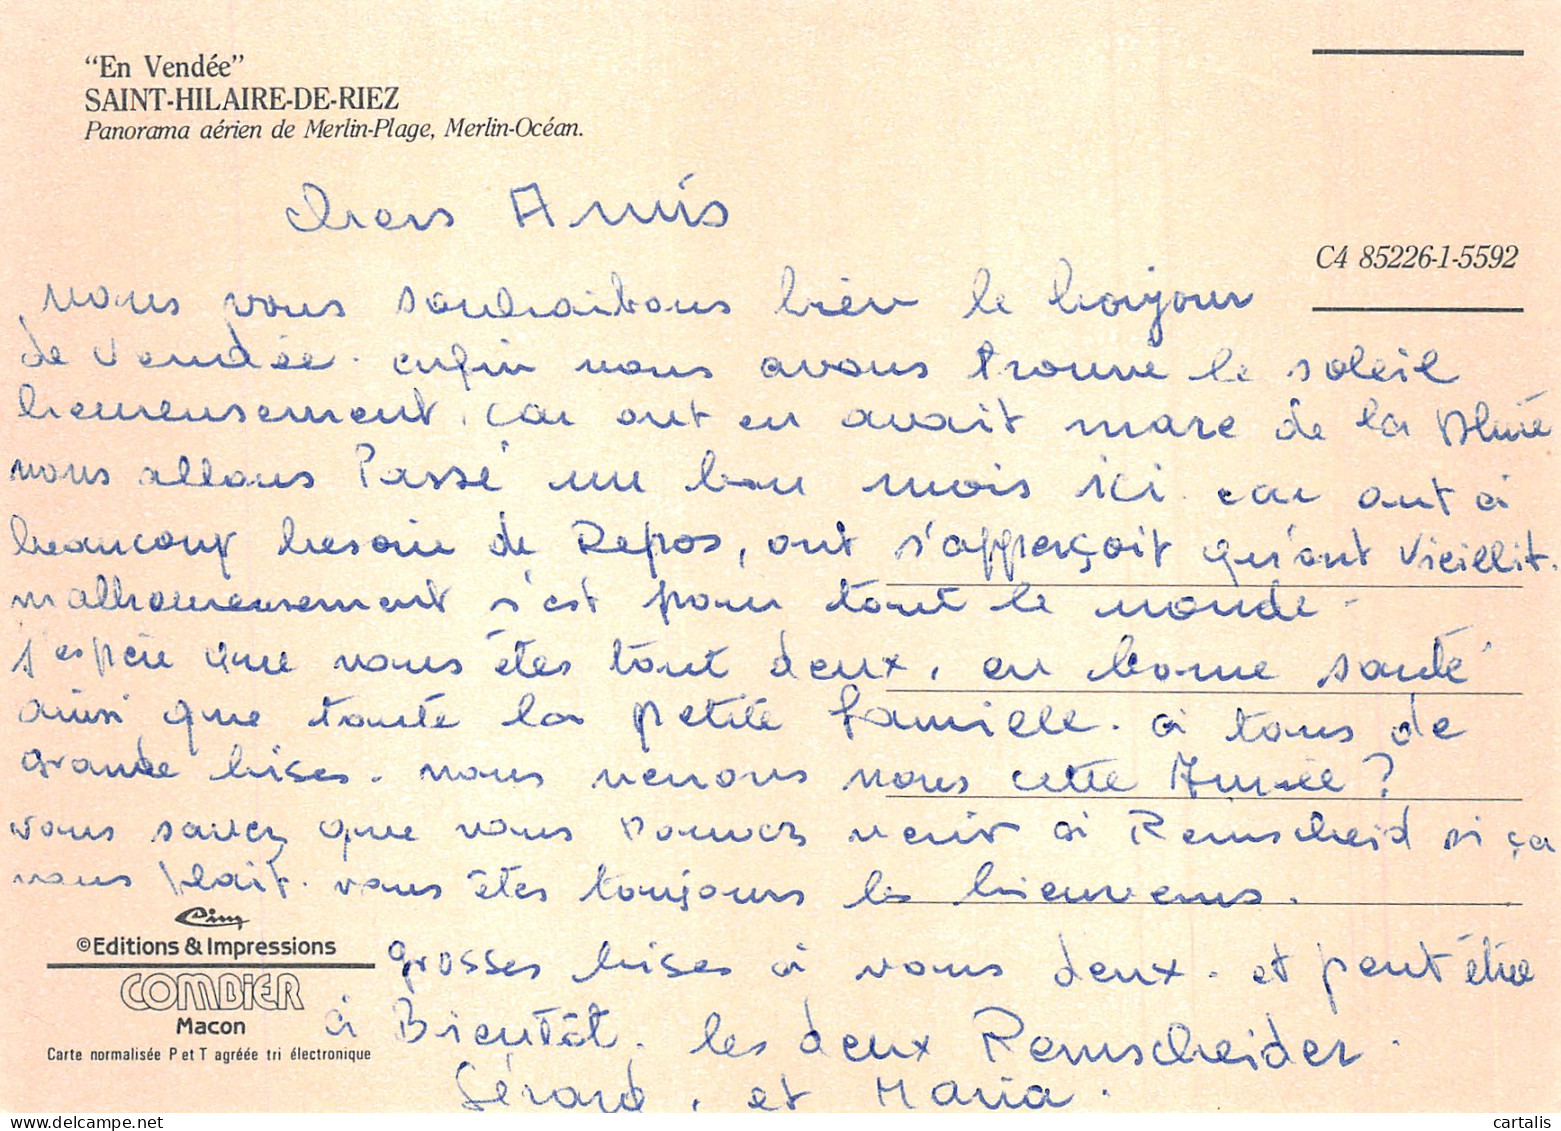 “En Vendée”
SAINT-HILAIRE-DE-RIEZ
Panorama aérien de Merlin-Plage, Merlin-Océan.
chers Amis
C4 85226-1-5592
nous vous souhaitons bien le bonjour
de Vendée. enfin nous avons trouvé le soleil
heureusement. car ont en avait marc de la Pluie
nous allons Passé un bon mois ici. car ont à
beaucoup besoin de Repos, ont s'apperçoit qu'ont vieillit.
malheureusement s'est pour tout le monde -
j'espère que vous êtes tout deux, en bonne santé
ainsi que toute la petite famille. à tous de
grande bises. nous venons nous cette Année?
vous savez que vous Pouvez venir à Remscheid si ça
vous plait. vous êtes toujours les bienvenus.
grosses bises à vous deux. et peut être
à Bientôt. les deux Remscheider.
Gérard. et Maria.
Cim
©Editions & Impressions
COMBIER
Macon
Carte normalisée P et T agréée tri électronique
www.delcampe.net
cartalis